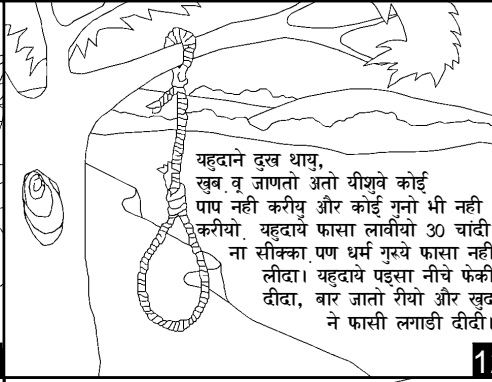 यहुदाने दुख थायु,
खुब व् जाणतो अतो यीशुवे कोई
पाप नही करीयु और कोई गुनो भी नही
करीयो. यहुदाये फासा लावीयो 30 चांदी
ना सीक्का पण धर्म गुरुये फासा नही
लीदा। यहुदाये पइसा नीचे फेकी
दीदा, बार जातो रीयो और खुद
ने फासी लगाडी दीदी।